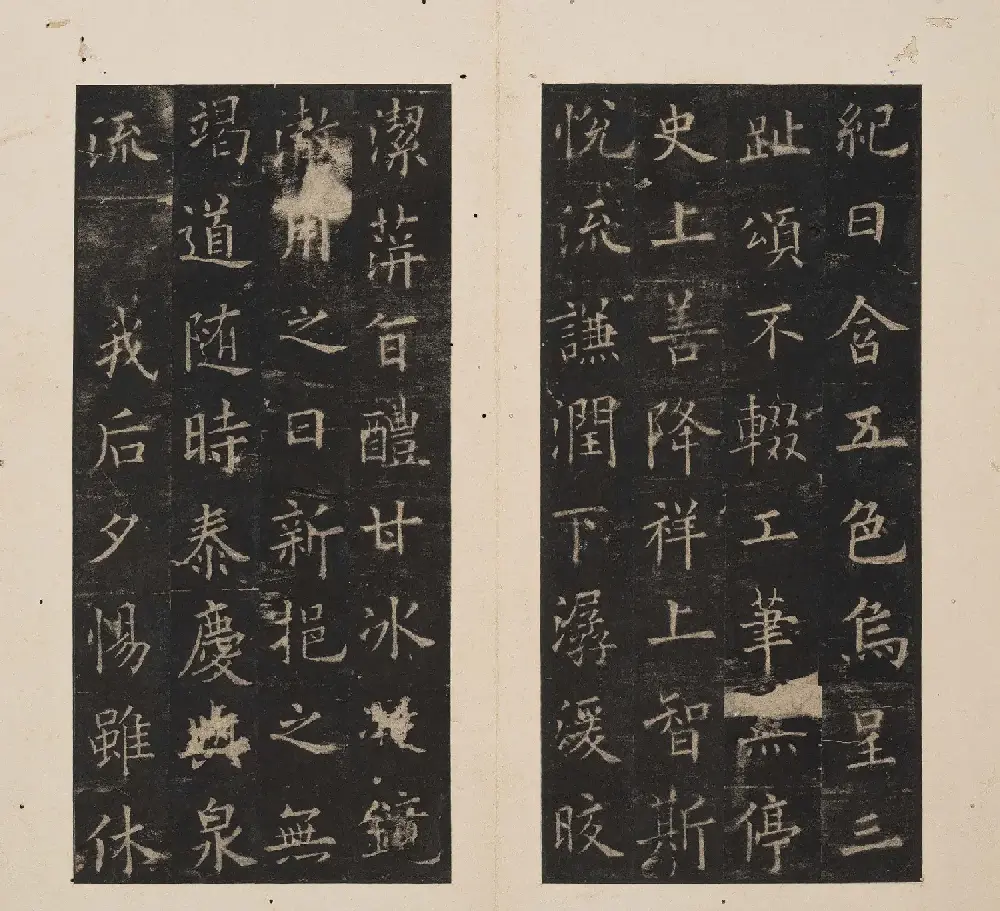 紀日含五色烏呈三
趾頌不輟工筆無停
史上善降祥上智斯
悅流謙潤下潺湲晈
潔蓱旨醴甘冰凝鏡
澈用之日新挹之無
竭道随時泰慶與泉
流我后夕惕雖休